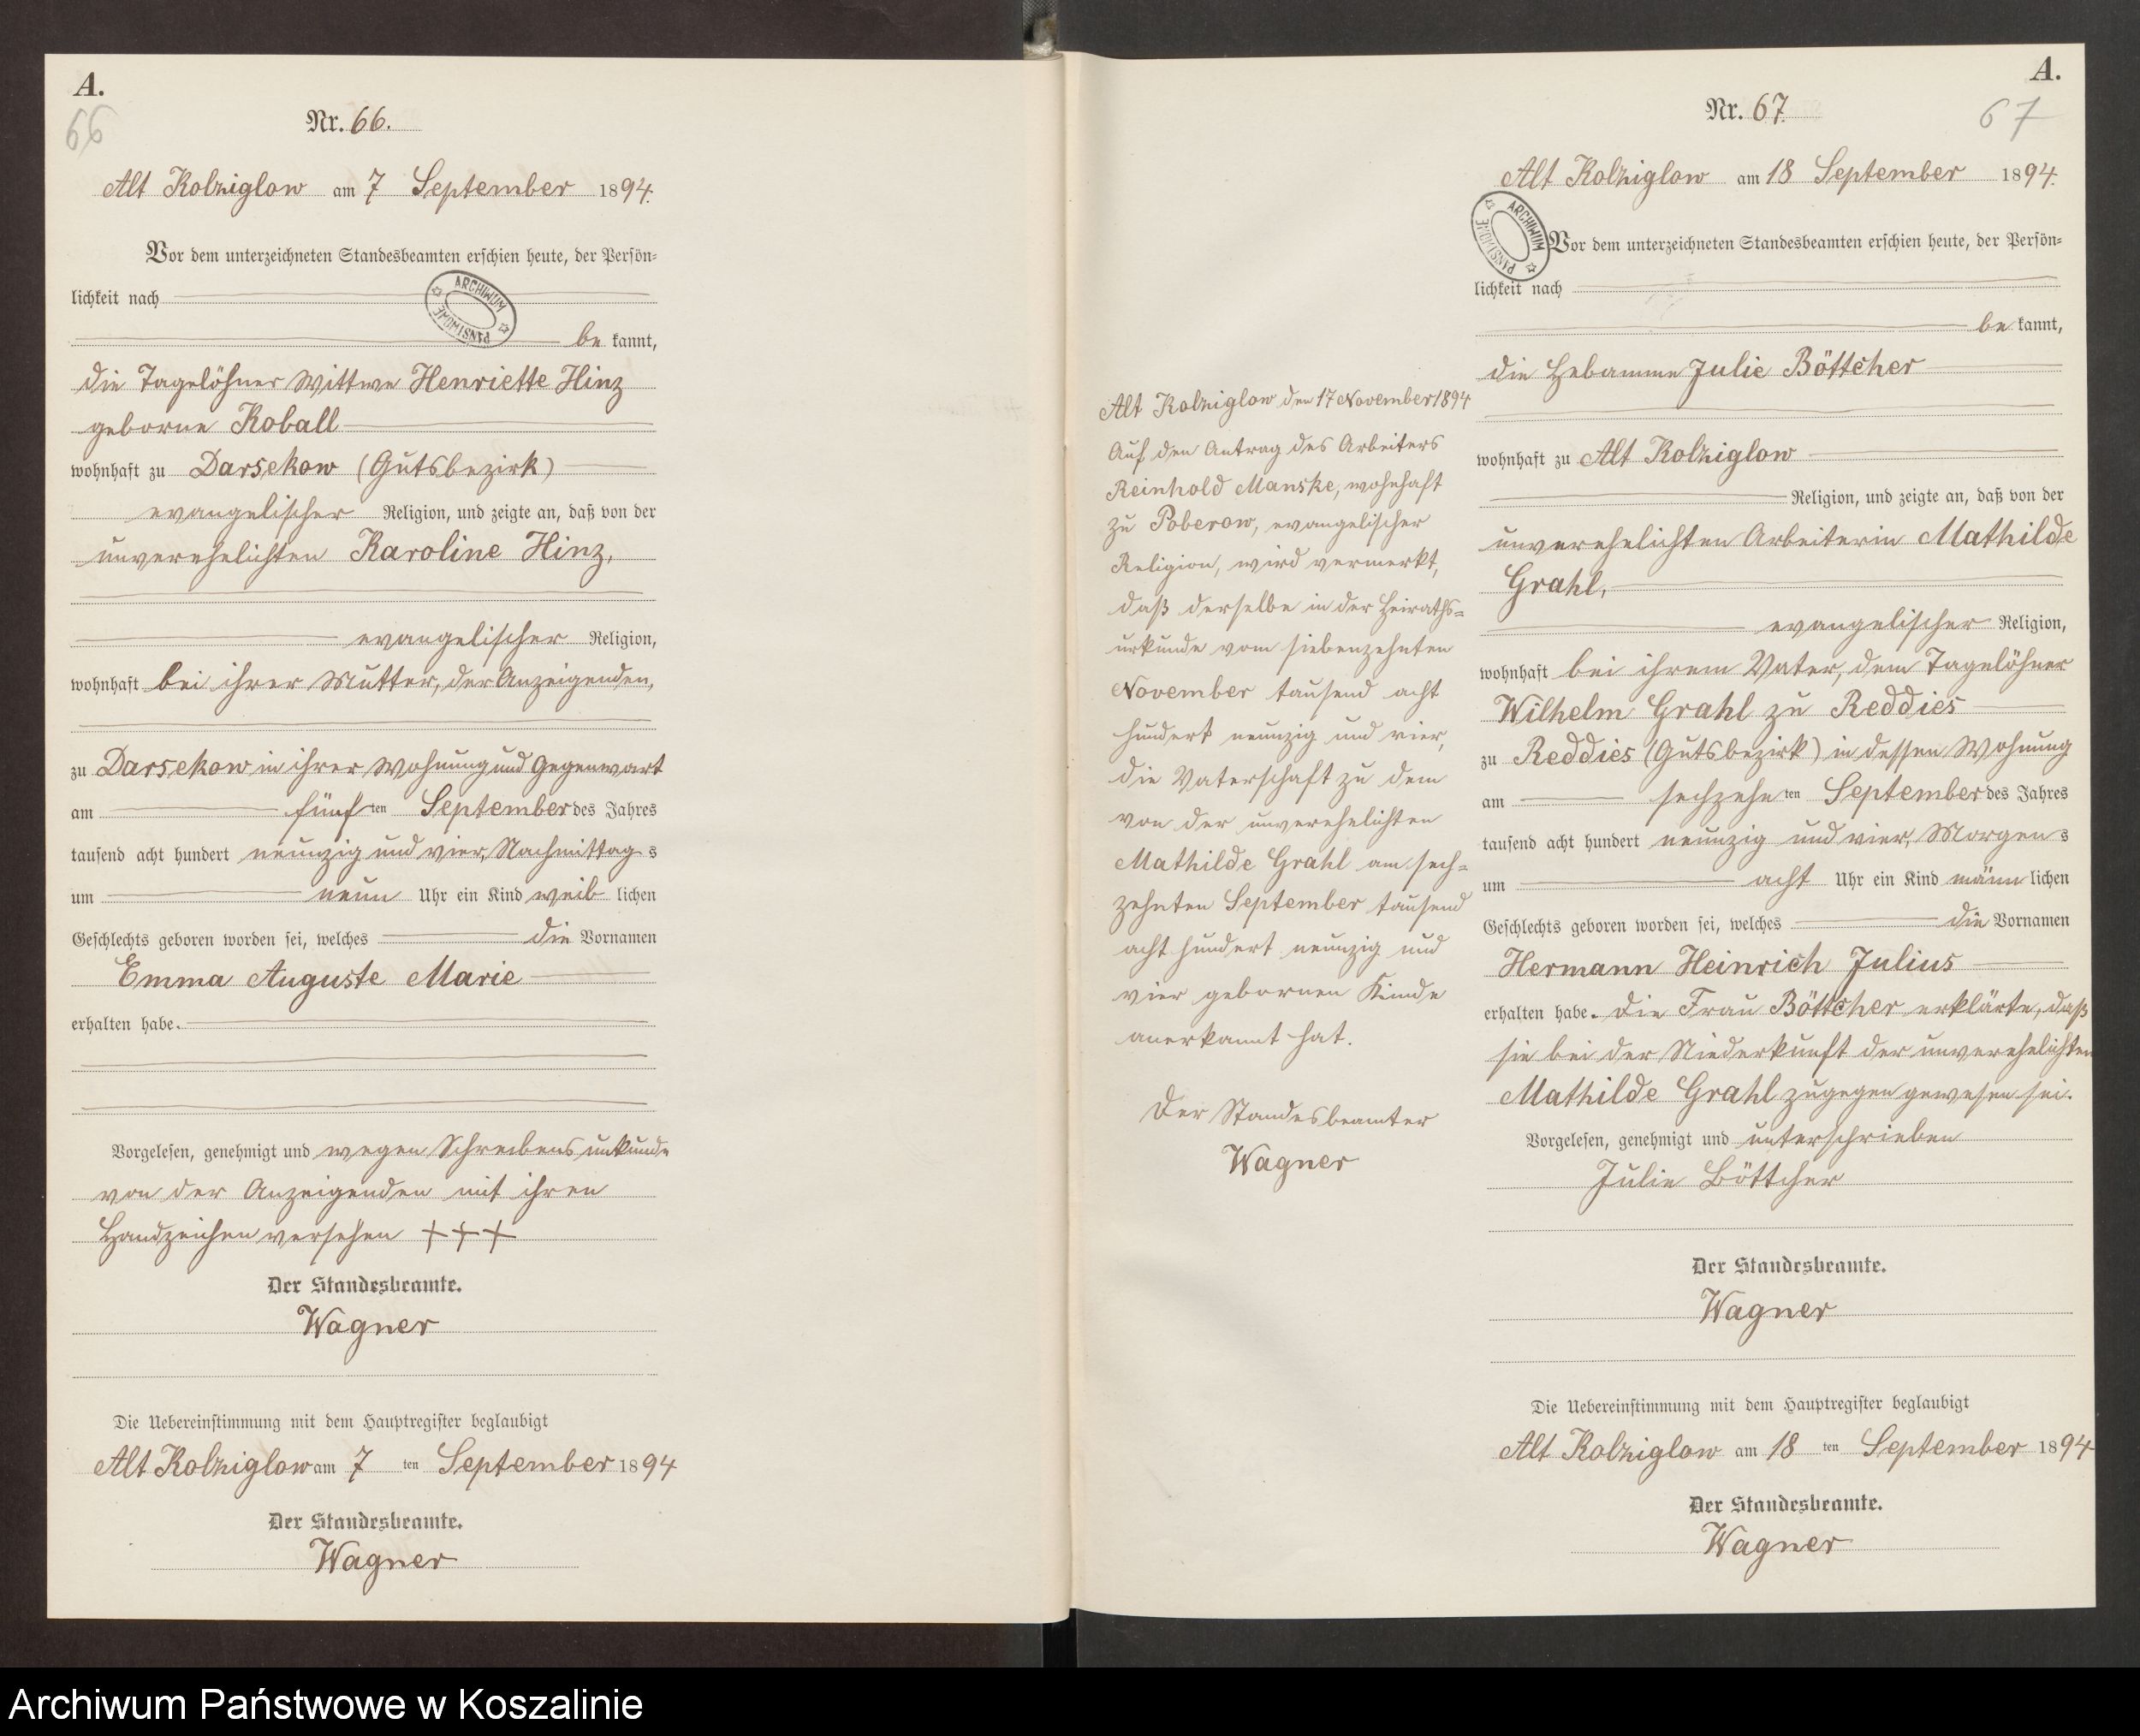 A.
66
Nr. 66.
Alt Kolziglow am 7 September 1894.
Vor dem unterzeichneten Standesbeamten erschien heute, der Persön-
lichkeit nach
ARCHIWUM PAŃSTWOWE
be kannt,
die Tagelöhner Wittwe Henriette Hinz
geborne Koball
wohnhaft zu Darsekow (Gutsbezirk)
evangelischer Religion, und zeigte an, daß von der
unverehelichten Karoline Hinz,
evangelischer Religion,
wohnhaft bei ihrer Mutter, der Anzeigenden,
zu Darsekow in ihrer Wohnung und Gegenwart
am fünf ten September des Jahres
tausend acht hundert neunzig und vier, Nachmittag s
um neun Uhr ein Kind weib lichen
Geschlechts geboren worden sei, welches die Vornamen
Emma Auguste Marie
erhalten habe.
Vorgelesen, genehmigt und wegen Schreibensunkunde
von der Anzeigenden mit ihren
Handzeichen versehen +++
Der Standesbeamte.
Wagner
Die Uebereinstimmung mit dem Hauptregister beglaubigt
Alt Kolziglow am 7 ten September 1894
Der Standesbeamte.
Wagner
Alt Kolziglow den 17 November 1894
Auf den Antrag des Arbeiters
Reinhold Manske, wohnhaft
zu Poberow, evangelischer
Religion, wird vermerkt,
daß derselbe in der Heiraths-
urkunde vom siebenzehnten
November tausend acht
hundert neunzig und vier,
die Vaterschaft zu dem
von der unverehelichten
Mathilde Grahl am sech-
zehnten September tausend
acht hundert neunzig und
vier gebornen Kinde
anerkannt hat.
Der Standesbeamter
Wagner
A.
67
Nr. 67.
Alt Kolziglow am 18 September 1894.
ARCHIWUM PAŃSTWOWE
Vor dem unterzeichneten Standesbeamten erschien heute, der Persön-
lichkeit nach
be kannt,
die Hebamme Julie Böttcher
wohnhaft zu Alt Kolziglow
Religion, und zeigte an, daß von der
unverehelichten Arbeiterin Mathilde
Grahl,
evangelischer Religion,
wohnhaft bei ihrem Vater, dem Tagelöhner
Wilhelm Grahl zu Reddies
zu Reddies (Gutsbezirk) in dessen Wohnung
am sechzehn ten September des Jahres
tausend acht hundert neunzig und vier, Morgen s
um acht Uhr ein Kind männ lichen
Geschlechts geboren worden sei, welches die Vornamen
Hermann Heinrich Julius
erhalten habe. Die Frau Böttcher erklärte, daß
sie bei der Niederkunft der unverehelichten
Mathilde Grahl zugegen gewesen sei.
Vorgelesen, genehmigt und unterschrieben
Julie Böttcher
Der Standesbeamte.
Wagner
Die Uebereinstimmung mit dem Hauptregister beglaubigt
Alt Kolziglow am 18 ten September 1894
Der Standesbeamte.
Wagner
Archiwum Państwowe w Koszalinie